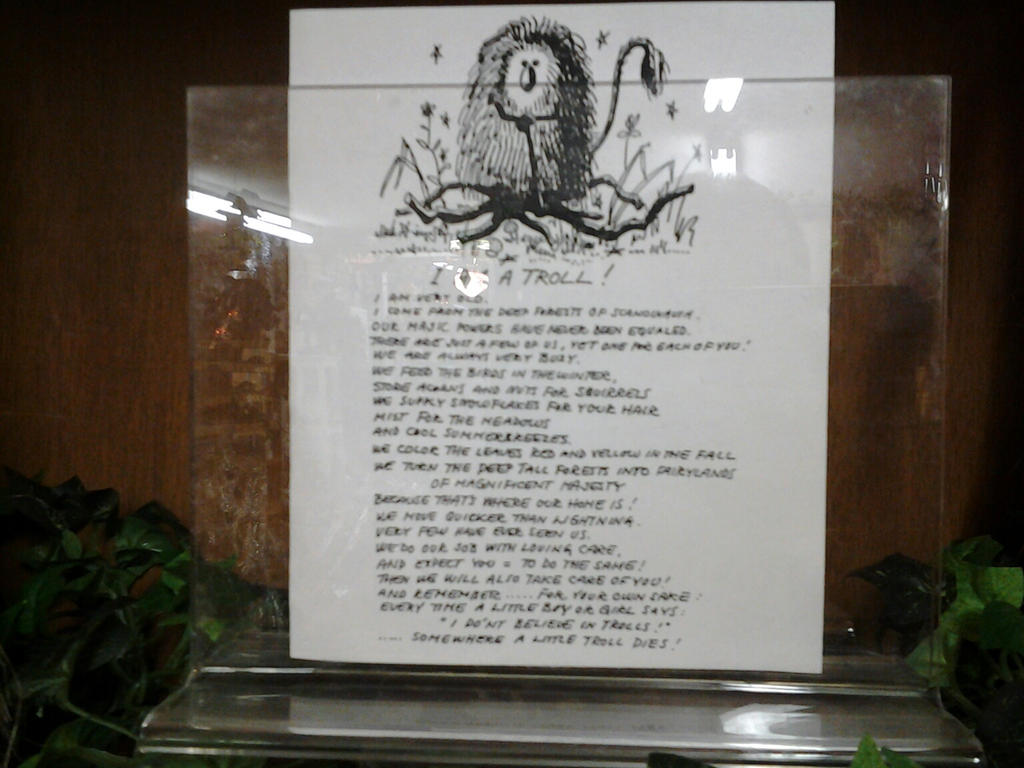 I A TROLL!
I AM VERY OLD.
I COME FROM THE DEEP FORESTS OF SCANDINAVIA.
OUR MAJIC POWERS HAVE NEVER BEEN EQUALED.
THERE ARE JUST A FEW OF US, YET ONE FOR EACH OF YOU!
WE ARE ALWAYS VERY BUSY.
WE FEED THE BIRDS IN THE WINTER,
STORE ACORNS AND NUTS FOR SQUIRRELS
WE SUPLY SNOWFLAKES FOR YOUR HAIR
MIST FOR THE MEADOWS
AND COOL SUMMERBREEZES.
WE COLOR THE LEAVES RED AND YELLOW IN THE FALL
WE TURN THE DEEP TALL FORESTS INTO FAIRYLANDS
OF MAGNIFICENT MAJESTY
BECAUSE THAT'S WHERE OUR HOME IS!
WE MOVE QUICKER THAN LIGHTNING.
VERY FEW HAVE EVER SEEN US.
WE DO OUR JOB WITH LOVING CARE,
AND EXPECT YOU = TO DO THE SAME!
THEN WE WILL ALSO TAKE CARE OF YOU!
AND REMEMBER ..... FOR YOUR OWN SAKE:
EVERY TIME A LITTLE BOY OR GIRL SAYS:
"I DO'NT BELIEVE IN TROLLS!"
.... SOMEWHERE A LITTLE TROLL DIES!